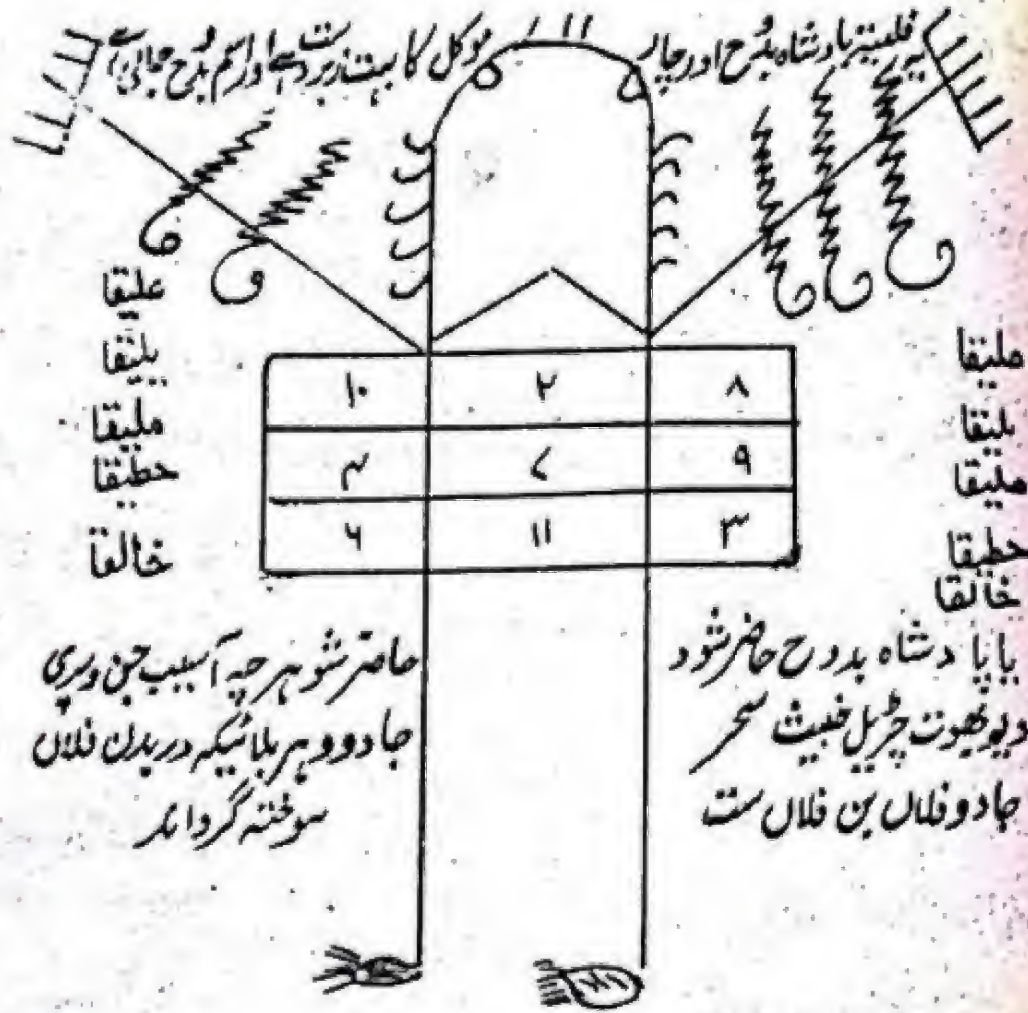 یہ فلیتہ بادشاہ بدُّوح اور چار موکل کا بہت زبردست ہے اور اسم بدُّوح جمالی ہے
علیقا
یلیقا
ملیقا
حطیقا
خالقا
ملیقا
بلیقا
ملیقا
حطیقا
خالقا
۱۰ ۲ ۸
۴ ۷ ۹
۶ ۱۱ ۳
یا پادشاہ بدوح حاضر شود
دیو بھوت چڑیل خبیث سحر
جادو فلاں بن فلاں ست
حاضر شو ہر چہ آسیب جن و پری
جادو و ہر بلائیکہ در بدن فلاں
سوختہ گرداند